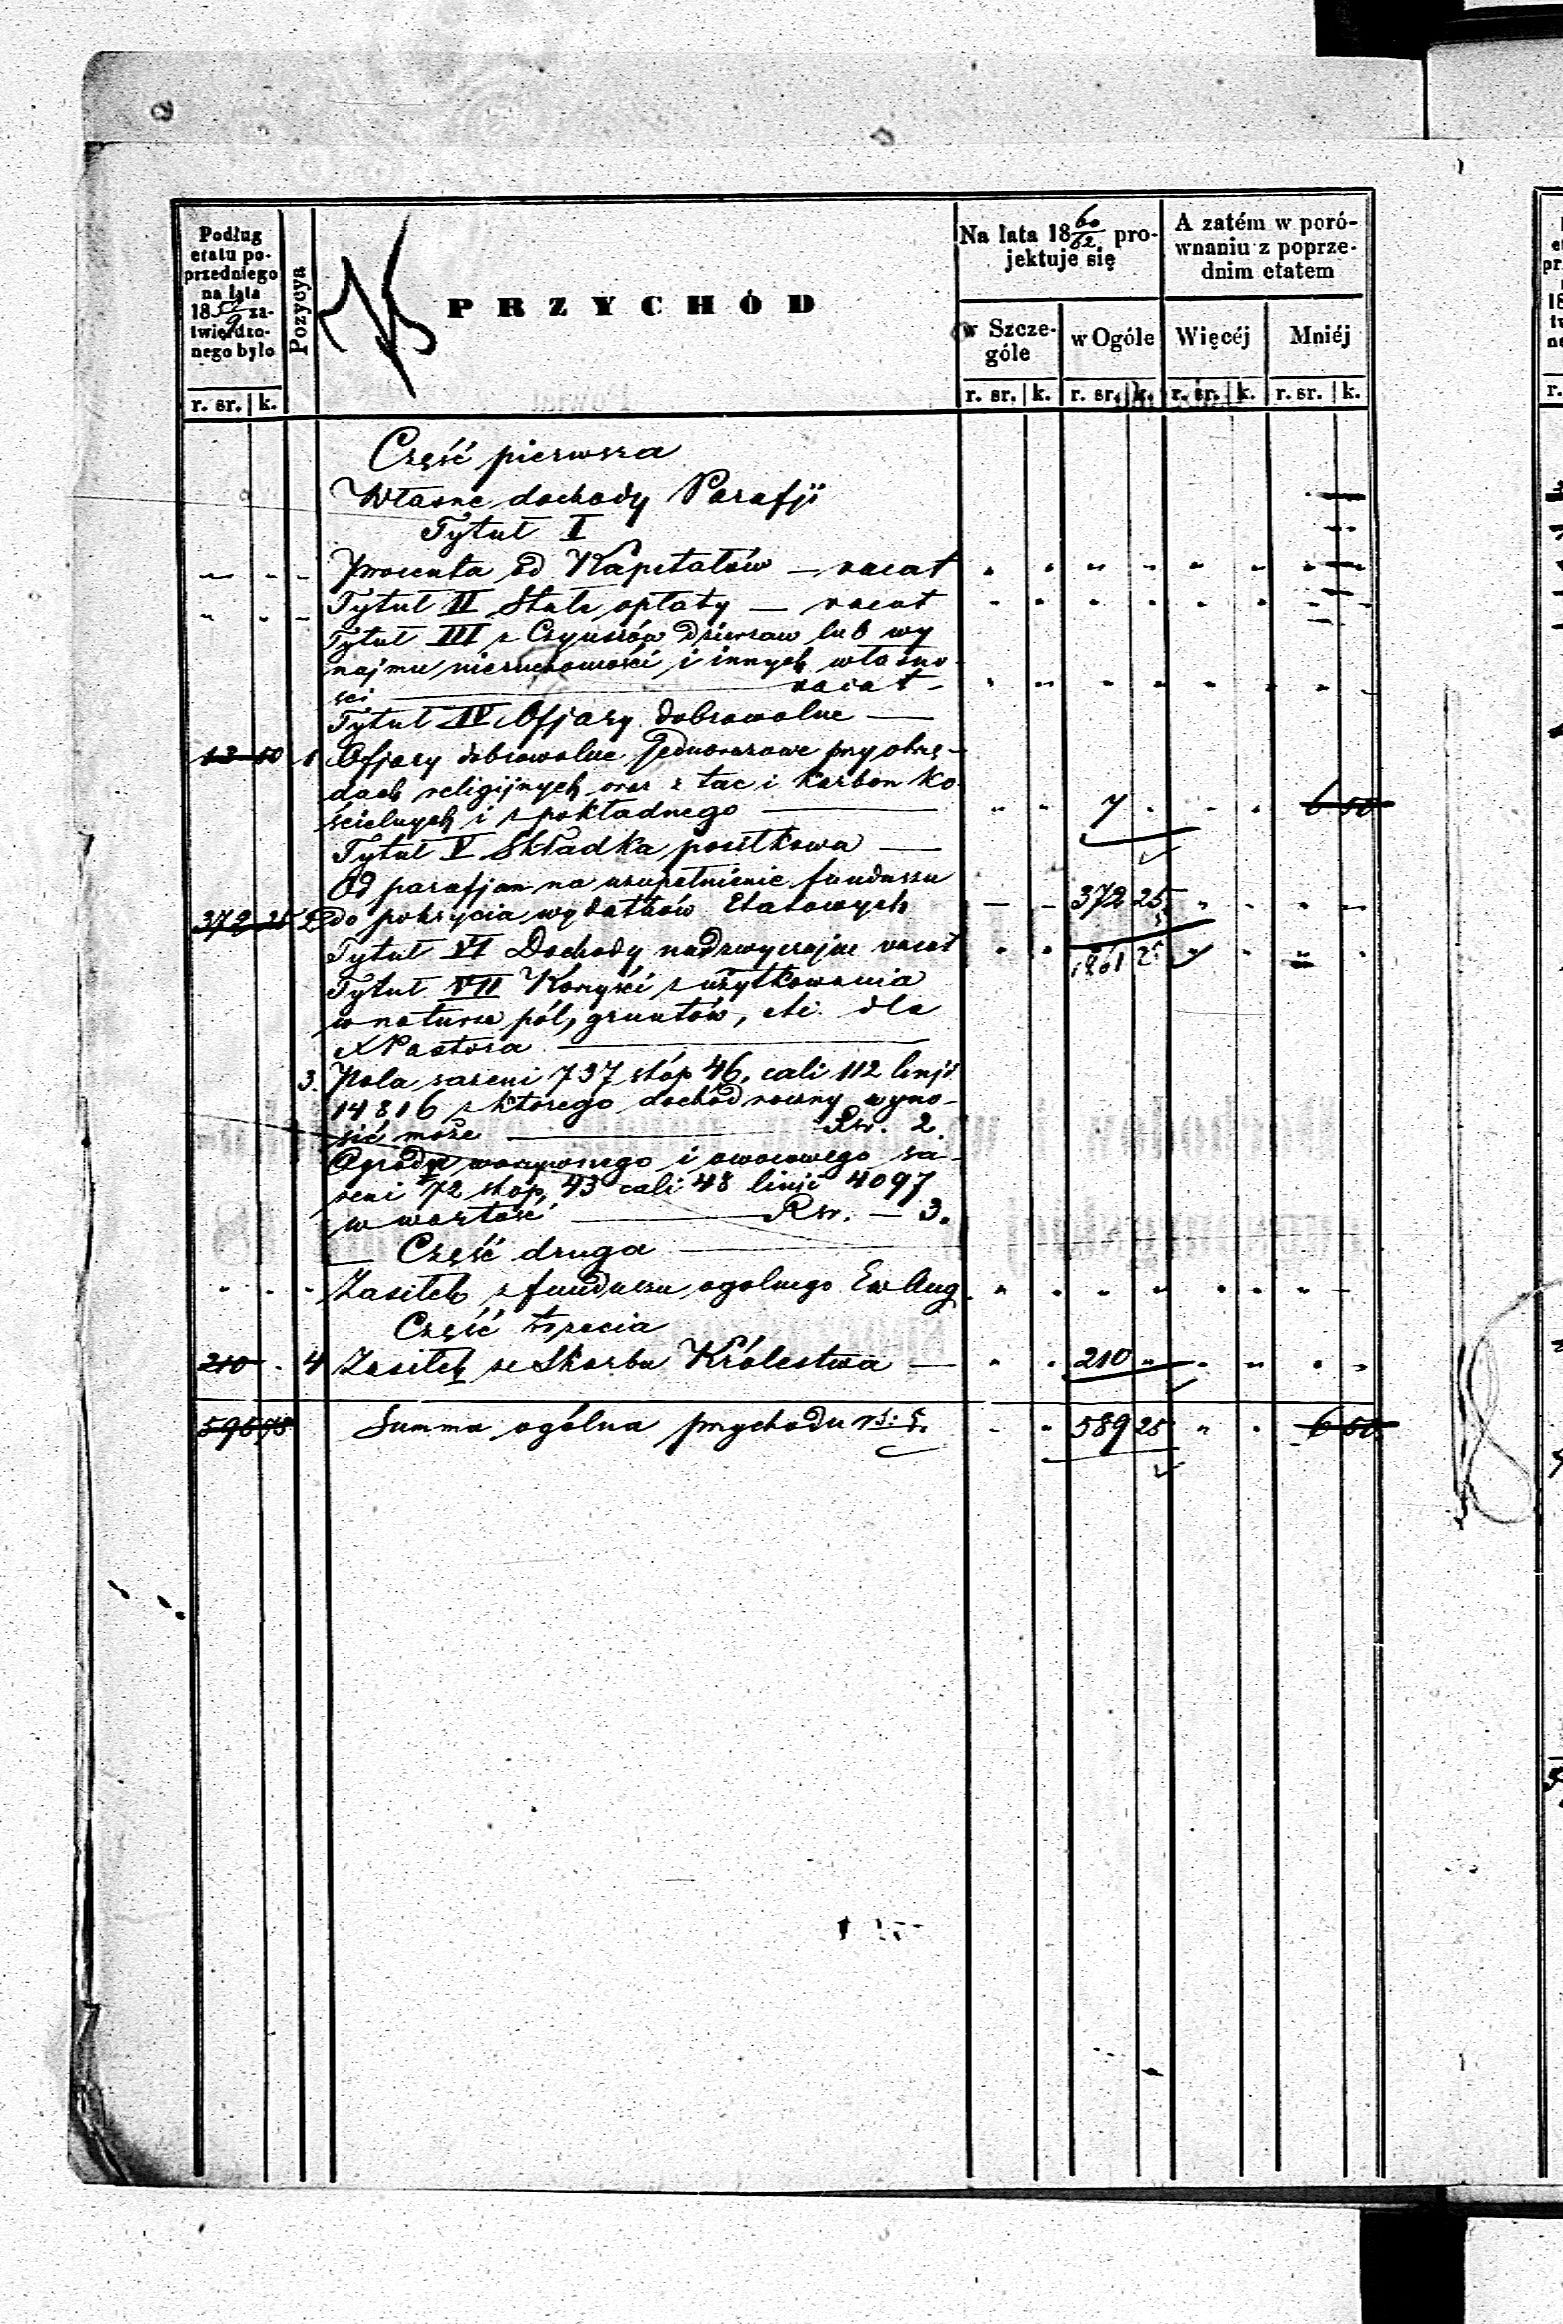 Podług
etatu po-
przedniego
na lata
18 za-
twierdzo-
nego było
r. sr. k.
Pozycya
PRZYCHÓD
Na lata 18 60/62 pro-
jektuje się
w Szcze-
góle
w Ogóle
A zatém w poró-
wnaniu z poprze-
dnim etatem
Więcéj
Mniéj
r. sr. k. r. sr. k. r. sr. k. r. sr. k.
Część pierwsza
Własne dochody Parafji
Tytuł I
Procenta od Kapitałów — vacat
Tytuł II Stałe opłaty — vacat
Tytuł III z Czynszów Dzierzaw lub wy
najmu nieruchomości i innych własno-
ści — vacat -
Tytuł IV Ofjary dobrowolne —
13 50 1 Ofjary dobrowolne jednorazowe przy obrzę-
dach religijnych oraz z tac i karbon ko-
ścielnych i z pokładnego — 7 6 50
Tytuł V Składka posiłkowa —
Od parafjan na uzupełnienie funduszu
372 25 2 do pokrycia wydatków Etatowych 372 25
Tytuł VI Dochody nadzwyczajne vacat
Tytuł VII Korzyści z użytkowania
w naturze pól, gruntów, etc. dla
X Pastora —
3. Pola sażeni 737 stóp 46, cali 112 linji
14816 z którego dochód roczny wyno-
sić może — Rsr. 2.
Ogrodu warzywnego i owocowego sa-
żeni 72 stóp, 43 cali 48 linji 4097
w wartość — Rsr. — 3.
Część druga —
Zasiłek z funduszu ogolnego Ew Aug.
Część trzecia
210 4 Zasiłek ze Skarbu Królestwa — 210
595 75 Summa ogólna przychodu rs: s. 589 25 6 50